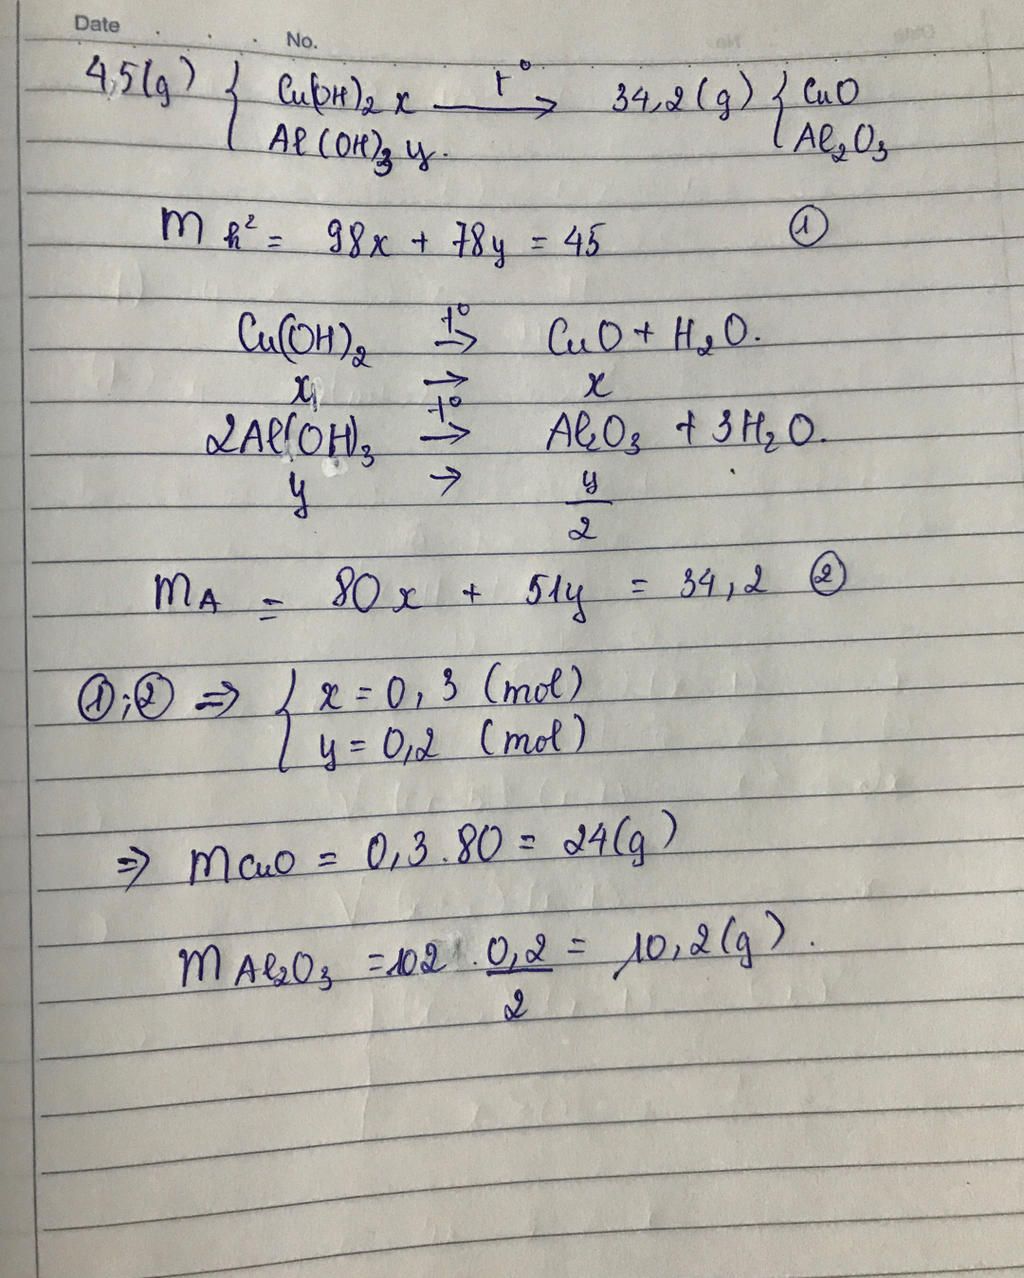 Date . . . No.
4,5(g) { Cu(OH)₂ x t° → 34,2(g) { CuO
Al(OH)₃ y. Al₂O₃
m h² = 98x + 78y = 45 ①
Cu(OH)₂ t° → CuO + H₂O.
x → x
2Al(OH)₃ t° → Al₂O₃ + 3H₂O.
y → y/2
m A = 80x + 51y = 34,2 ②
①;② ⇒ { x = 0,3 (mol)
y = 0,2 (mol)
⇒ m CuO = 0,3.80 = 24(g)
m Al₂O₃ = 102 . 0,2/2 = 10,2(g).